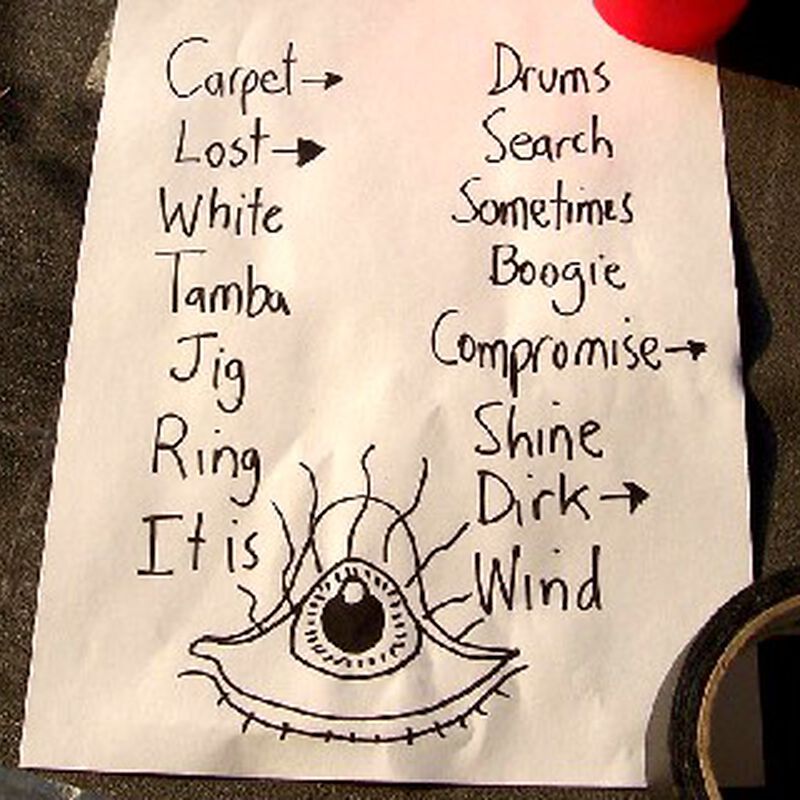 Carpet→
Lost→
White
Tamba
Jig
Ring
It is
Drums
Search
Sometimes
Boogie
Compromise→
Shine
Dirk→
Wind